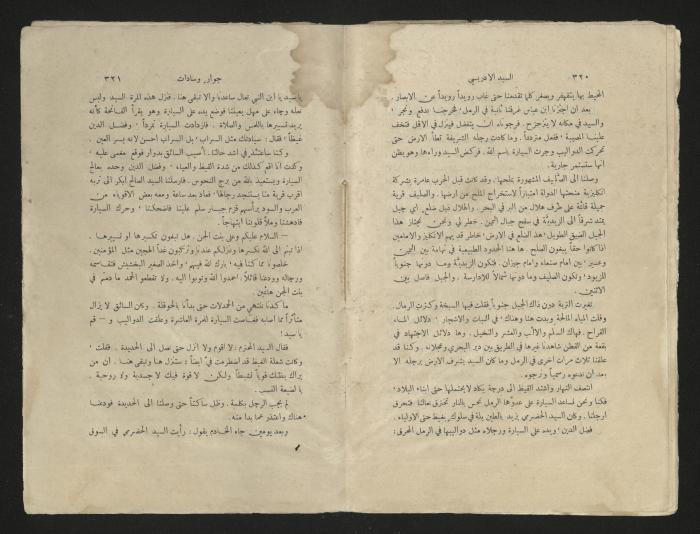 ٣٢٠ السيد الادريسي
المحيط بها يتقهقر ويصغر كلما تقدمنا حتى غاب رويداً رويداً عن الابصار.
بعد ان اجتزنا ابن عباس غرقنا ثانية في الرمل، فخرجنا ندفع ونجر،
والسيد في مكانه لا يتزحزح. فرجوناه ان يتفضل فينزل في الاقل فتخف
علينا المصيبة، ففعل متردداً. وما كادت رجله الشريفة تطأ الارض حتى
تحركت الدواليب وجرت السيارة باسم الله. فركض السيد وراءها وهو يظن
انها ستستمر جارية.
وصلنا الى الصليف المشهورة بملحها، وقد كانت قبل الحرب عامرة بشركة
انكليزية منحتها الدولة امتيازاً لاستخراج الملح من ارضها. والصليف قرية
جميلة قائمة على طرف هلال من البر في البحر. والهلال ذيل ضلع، اي جبل
يمتد شرقاً الى الزيدية في سفح جبال اليمن. خطر لي ونحن نجتاز هذا
الجبل الضيق الطويل، هذا الضلع في الارض، خاطر قد يهم الانكليز والامامين
اذا كانوا حقاً يبغون الصلح. ها هنا الحدود الطبيعية في تهامة بين اليمن
وعسير، بين امام صنعاء وامام جيزان. فتكون الزيدية وما دونها جنوباً
للزيود، وتكون الصليف وما دونها شمالاً للادارسة. والجبل فاصل بين
الاثنين.
تغيرت التربة دون ذاك الجبل جنوباً فقلت فيها السبخة وكثرت الرمال.
وقلت المياه المالحة وبدت هنا وهناك، في النبات والاشجار، دلائل الماء
القراح. فهاك السلم والاثب والعشر والنخيل. وها دلائل الاجتهاد في
بقعة من القطن شاهدنا غيرها في الطريق بين دير البحري وعبلانه. وكنا قد
علقنا ثلاث مرات اخرى في الرمل وما كان السيد يشرف الارض برجله الا
بعد ان ندعوه رسمياً ونرجوه.
انتصف النهار واشتد القيظ الى درجة يكاد لا يحتملها حتى ابناء البلاد،
فكنا ونحن نساعد السيارة على عدوها الرمل نحس بالنار تخترق نعالنا فتحرق
ارجلنا. وكان السيد الحضرمي يزيد بالطين بلة في سلوك يغيظ حتى الاولياء.
فضل الدين، ويده على السيارة ورجلاه مثل دواليبها في الرمل المحرق:
جوار وسادات ٣٢١
يا سيد يا ابن النبي تعال ساعدنا والا تبقى هنا. فنزل هذه المرة السيد ولبس
نعله وجاء على مهل بعيلنا فوضع يده على السيارة وهو يقرأ الفاتحة كأنه
يريد تسييرها باللمس والصلاة. فازدادت السيارة تمرداً، وفضل الدين
غيظاً، فقال: سيادتك مثل السراب، بل السراب احسن لانه يسر العين.
وكنا ساعتئذ في اشد حالنا. أصيب السائق بدوار فوقع مغمى عليه،
وكدت أنا اقع كذلك من شدة القيظ والعياء، وفضل الدين وحده يعالج
السيارة ويستعيذ بالله من برج النحوس. فارسلنا السيد الصالح ابكر الى قرية
اقرب قرية منا يستنجد رجالها، فعاد بعد ساعة ومعه بعض الاقوياء من
العرب والسود يرأسهم قزم جسار سلم علينا فاضحكنا، وحرك السيارة
فادهشنا وملأ قلوبنا ابتهاجاً:
— السلام عليكم وعلى بنت الجن. هل تبغون تكسيرها او تسييرها.
اذا تبتم الى الله نكسرها ونزلكم عندنا وتركبون غداً الهجين مثل المؤمنين.
خلصونا مما كنا فيه، بارك الله فيهم، واخذ الصغير البخشيش فتقاسمه
ورجاله وودعنا قائلاً: احمدوا الله وتوبوا اليه. ولا تقطعوا الحمد ما دمتم في
بنت الجن هائمين.
ما كدنا ننتهي من المحدلات حتى بدأنا بالحوقلة. وكان السائق لا يزال
متأثراً مما اصابه ففاصت السيارة للمرة العاشرة وعلقت الدواليب و — قم
يا سيد!
فقال السيد المحترم: لا اقوم ولا انزل حتى نصل الى الحديدة. فقلت،
وكانت شعلة الغيظ قد اضطرمت فيّ ايضاً: ستنزل هنا وتبقى هنا. ان من
يراك يظنك قوياً نشيطاً ولكن لا قوة فيك لا جسدية ولا روحية.
يا لضيعة النسب.
لم يجب الرجل بكلمة. وظل ساكتاً حتى وصلنا الى الحديدة فودعنا
هناك واعتذر عما بدا منه.
وبعد يومين جاء الخادم يقول: رأيت السيد الحضرمي في السوق